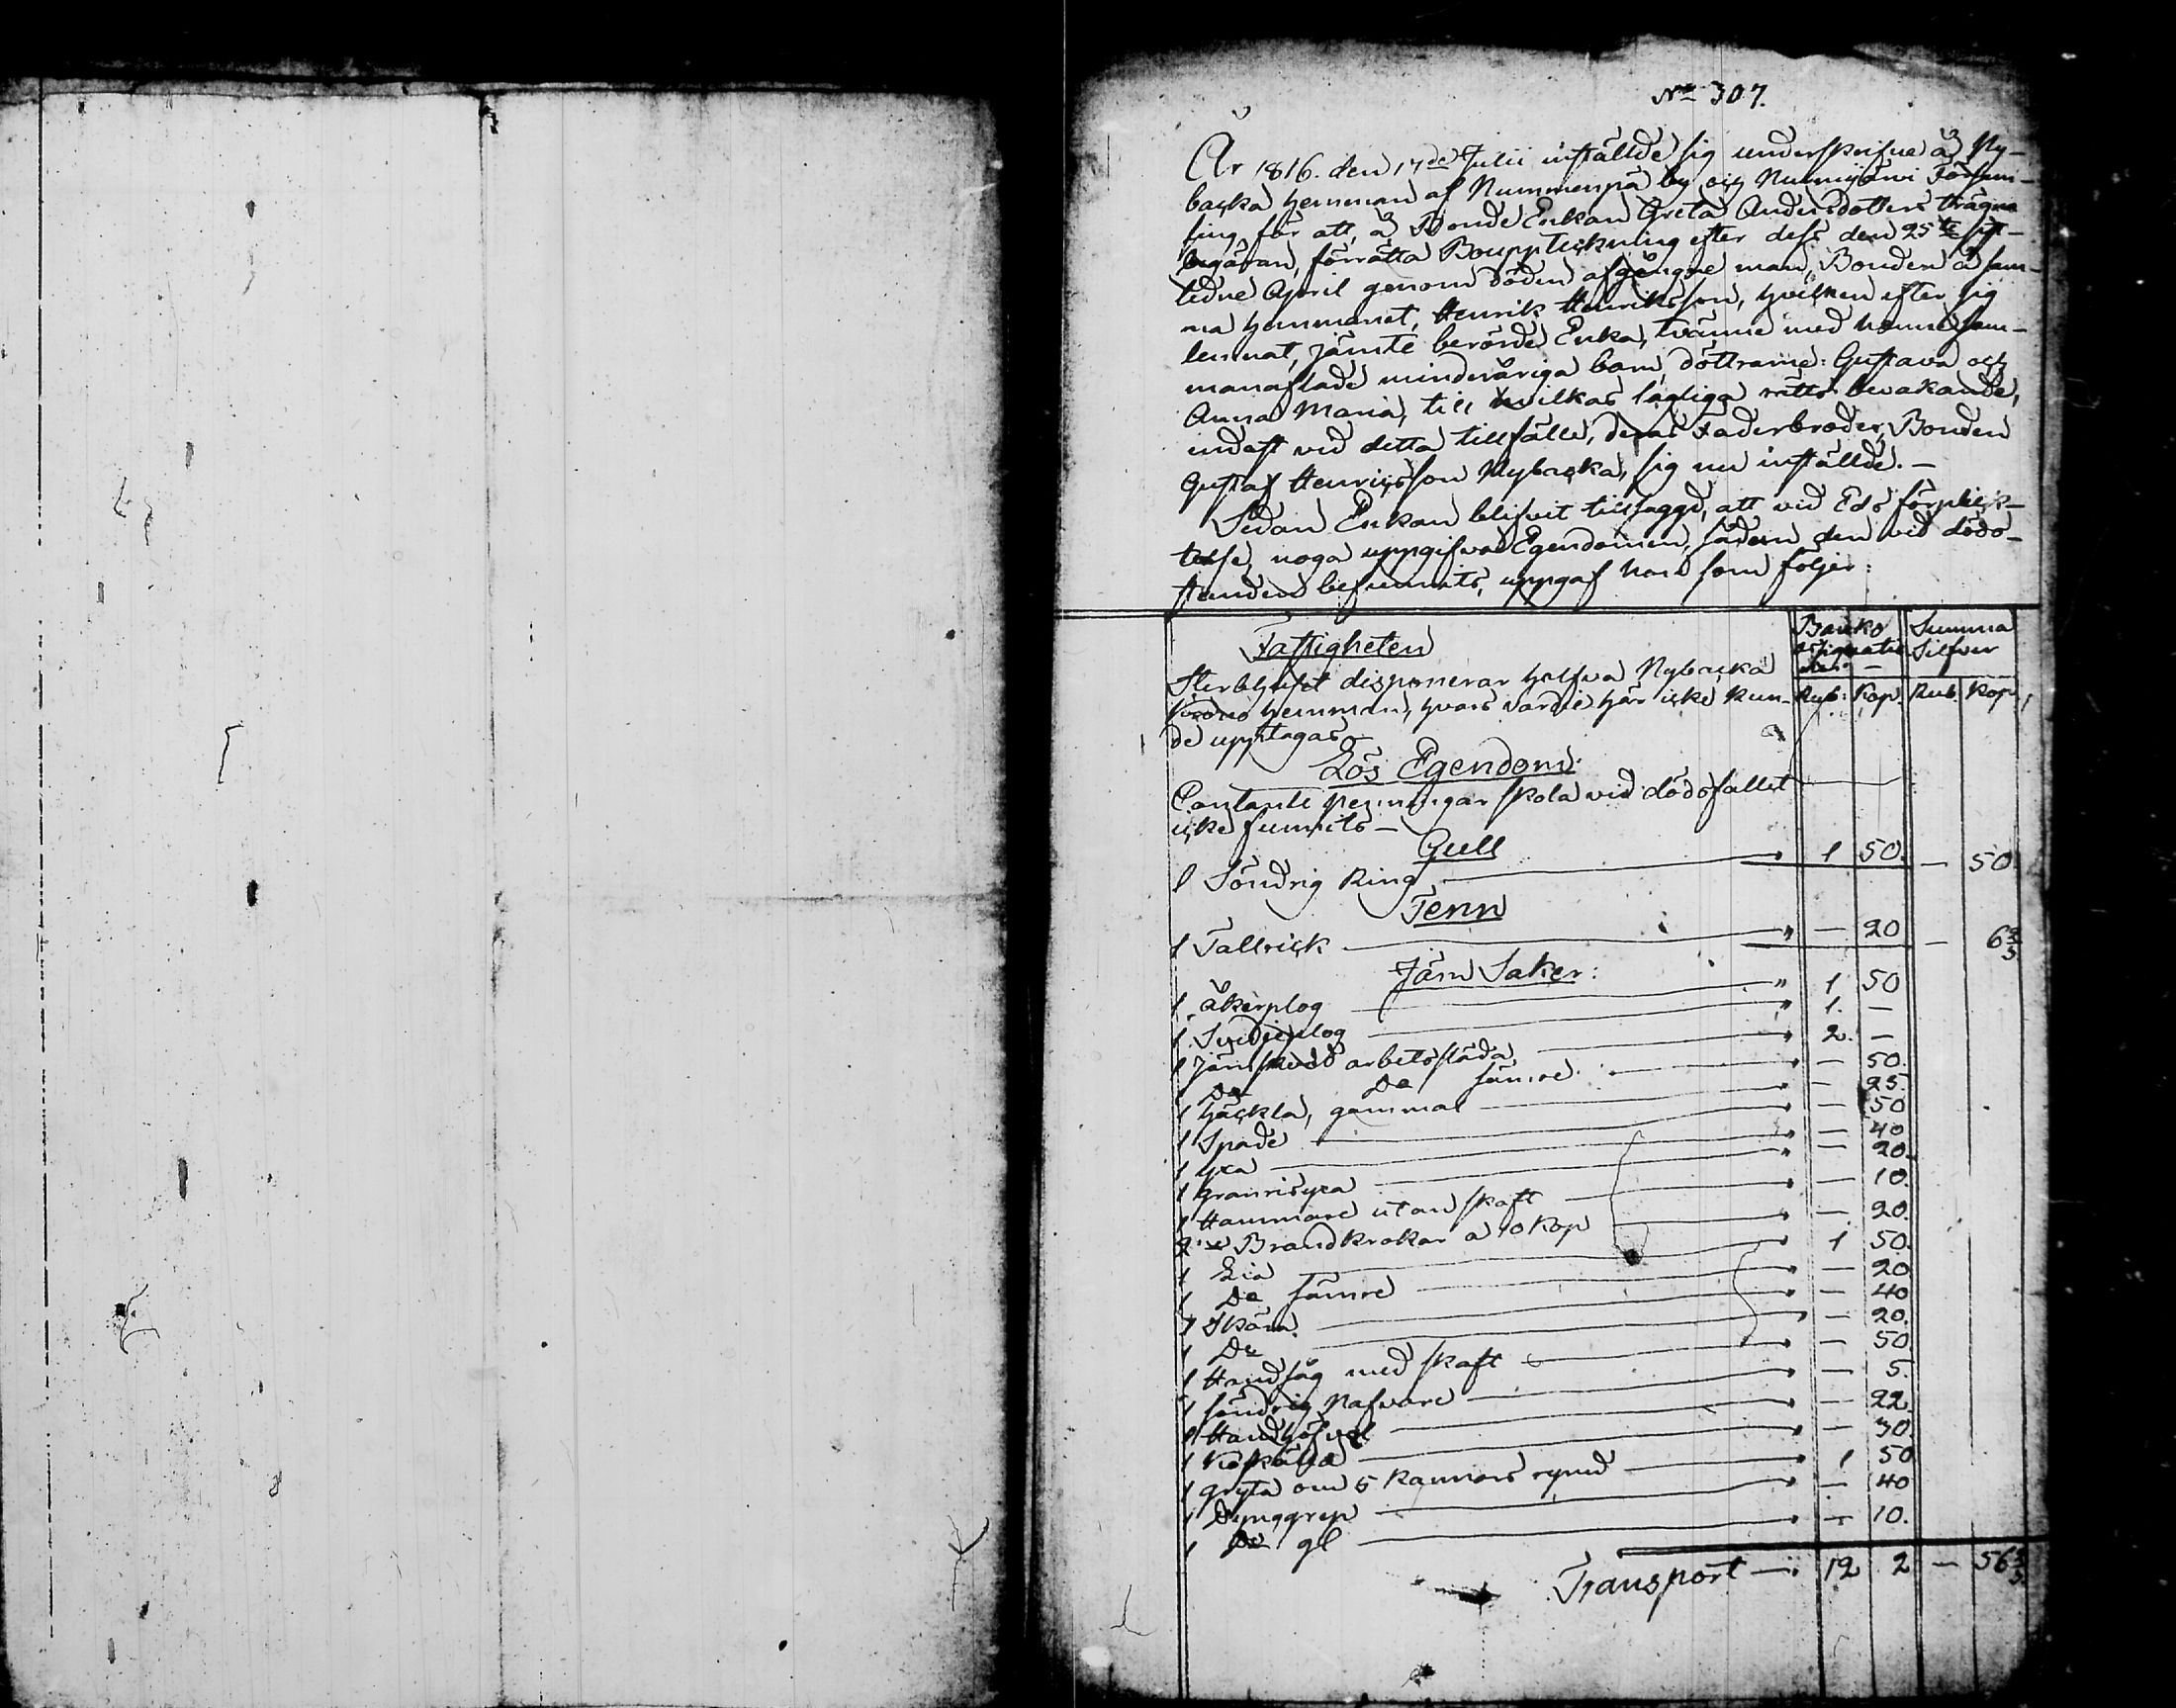 No 307.
År 1816. den 17de Julii inställde sig underskrifne å Ny-
backa hemman af Nummenpä by och Nurmijärwi Församl-
ling, för att, å Bonde Enkan Greta Andersdotters trägna
begäran, förrätta Bouppteckning efter dess den 25te sist-
ledne April genom döden afgångne man, Bonden å sam-
ma hemmanet, Henrik Henriksson, hvilken efter sig
lemnat, jämte berörde Enka, tvänne med henne sam-
manaflade minderåriga barn, döttrarne: Gustava och
Anna Maria, till hvilkas lagliga rätts bevakande,
endast vid detta tillfälle, deras Faderbroder, Bonden
Gustaf Henricsson Nybacka, sig nu inställde. —
Sedan Enkan blifvit tillsaggd, att vid Eds förplick-
telse, noga uppgifva Egendomen, sådan den vid döds-
stunden befunnits, uppgaf hon som följer:
Fastigheten
Banko assignatio ner — Summa Silfver
Sterbhuset disponerar halfva Nybacka
Rub: Kop. Rub. Kop.
hemman, hvars värde här icke kun-
de upptagas —
Lös Egendom:
Contante penningar skola vid dödsfallet
icke funnits —
Gull
1 Söndrig Ring — 1 50. — 50
Tenn
1 Tallrick — — 20 — 6 2/3
Järn Saker:
1 åkerplog — " 1 50
1 Svedjeplog — " 1. —
1 Järnskodd arbetssläda — 2. —
1 Do Do sämre — — 50.
1 häckla, gammal — — 25.
1 Spade — — 50
1 yxa — — 40
1 granrisyxa — — 20.
1 Hammare utan skaft — — 10.
2 Brandkrokar a 10 Kop — — 20.
1 Lia — 1 50.
1 Do sämre — — 20
1 Skära — — 40
1 Do — — 20.
1 Handsåg med skaft — — 50
1 söndrig Nafvare — — 5.
1 Handhöfvel — — 22
1 — — 30
1 gryta om 5 Kannors rymd — 1 50
1 Dynggrep — — 40
1 Do gl — — 10.
Transport — 12 2 — 56 2/3